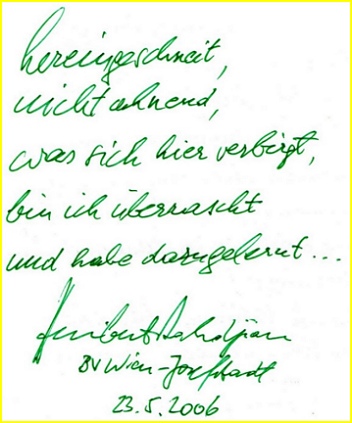 hereingeschneit,
nicht ahnend,
was sich hier verbirgt,
bin ich überrascht
und habe dazugelernt...
Heribert Rahdjian
BV Wien-Josefstadt
23.5.2006